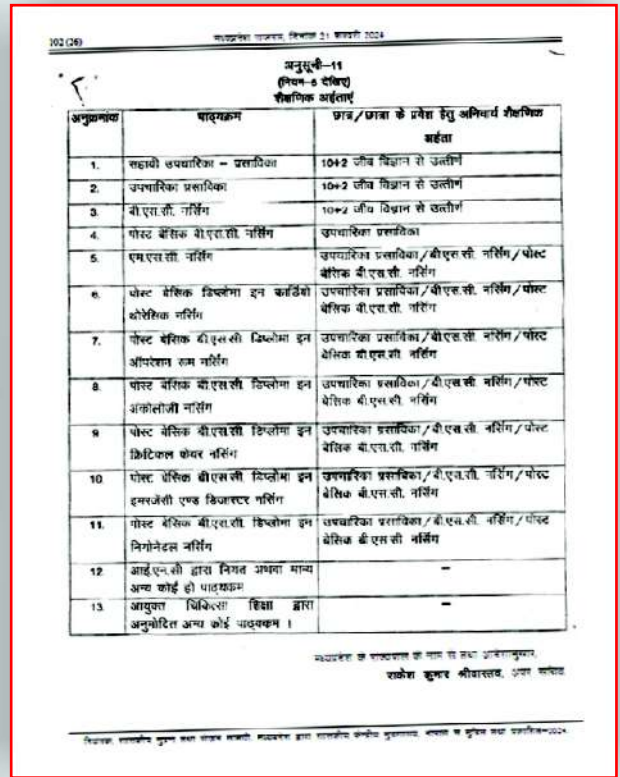 102 (26)
मध्यप्रदेश राजपत्र, दिनांक 21 फरवरी 2024
अनुसूची—11
(नियम—5 देखिए)
शैक्षणिक अर्हताएं
अनुक्रमांक पाठ्यक्रम छात्र/छात्रा के प्रवेश हेतु अनिवार्य शैक्षणिक
अर्हता
1. सहायी उपचारिका – प्रसाविका 10+2 जीव विज्ञान से उत्तीर्ण
2. उपचारिका प्रसाविका 10+2 जीव विज्ञान से उत्तीर्ण
3. बी.एस.सी. नर्सिंग 10+2 जीव विज्ञान से उत्तीर्ण
4. पोस्ट बेसिक बी.एस.सी. नर्सिंग उपचारिका प्रसाविका
5. एम.एस.सी. नर्सिंग उपचारिका प्रसाविका/बी.एस.सी. नर्सिंग/पोस्ट
बेसिक बी.एस.सी. नर्सिंग
6. पोस्ट बेसिक डिप्लोमा इन कार्डियो उपचारिका प्रसाविका/बी.एस.सी. नर्सिंग/पोस्ट
थोरेसिक नर्सिंग बेसिक बी.एस.सी. नर्सिंग
7. पोस्ट बेसिक बी.एस.सी डिप्लोमा इन उपचारिका प्रसाविका/बी.एस.सी. नर्सिंग/पोस्ट
ऑपरेशन रूम नर्सिंग बेसिक बी.एस.सी. नर्सिंग
8. पोस्ट बेसिक बी.एस.सी. डिप्लोमा इन उपचारिका प्रसाविका/बी.एस.सी. नर्सिंग/पोस्ट
अंकोलोजी नर्सिंग बेसिक बी.एस.सी. नर्सिंग
9 पोस्ट बेसिक बी.एस.सी. डिप्लोमा इन उपचारिका प्रसाविका/बी.एस.सी. नर्सिंग/पोस्ट
क्रिटिकल केयर नर्सिंग बेसिक बी.एस.सी. नर्सिंग
10. पोस्ट बेसिक बी.एस.सी. डिप्लोमा इन उपचारिका प्रसाविका/बी.एस.सी. नर्सिंग/पोस्ट
इमरजेंसी एण्ड डिजास्टर नर्सिंग बेसिक बी.एस.सी. नर्सिंग
11. पोस्ट बेसिक बी.एस.सी. डिप्लोमा इन उपचारिका प्रसाविका/बी.एस.सी. नर्सिंग/पोस्ट
निगोनेटल नर्सिंग बेसिक बी.एस.सी नर्सिंग
12. आई.एन.सी द्वारा अथवा मान्य –
अन्य कोई हो पाठ्यक्रम
13. आयुक्त चिकित्सा शिक्षा द्वारा –
अनुमोदित अन्य कोई पाठ्यक्रम ।
मध्यप्रदेश के राज्यपाल के नाम से तथा आदेशानुसार,
राकेश कुमार श्रीवास्तव, अपर सचिव
शासकीय मुद्रण तथा मध्यप्रदेश द्वारा शासकीय केन्द्रीय मुद्रणालय, भोपाल से मुद्रित तथा प्रकाशित—2024.